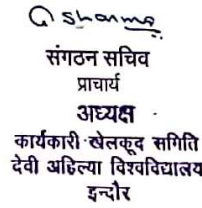 G Sharma
संगठन सचिव
प्राचार्य
अध्यक्ष
कार्यकारी खेलकूद समिति
देवी अहिल्या विश्वविद्यालय
इन्दौर